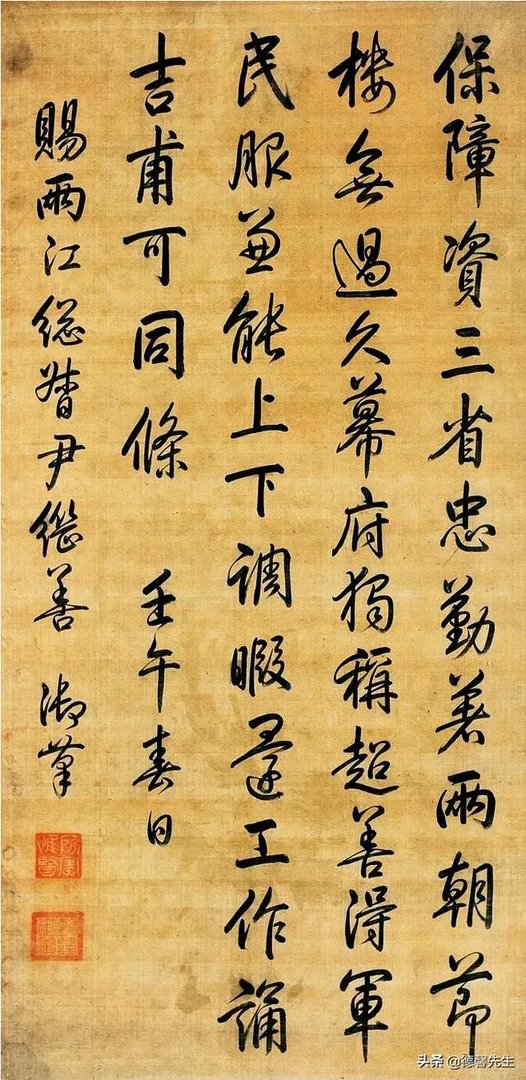 保障資三省忠勤著兩朝節
楼無過久幕府獨稱超善得軍
民服兼能上下調暇還工作誦
吉甫可同條 壬午春日
賜兩江總督尹繼善 御筆
所寶惟賢
乾隆御筆
头条 @德馨先生